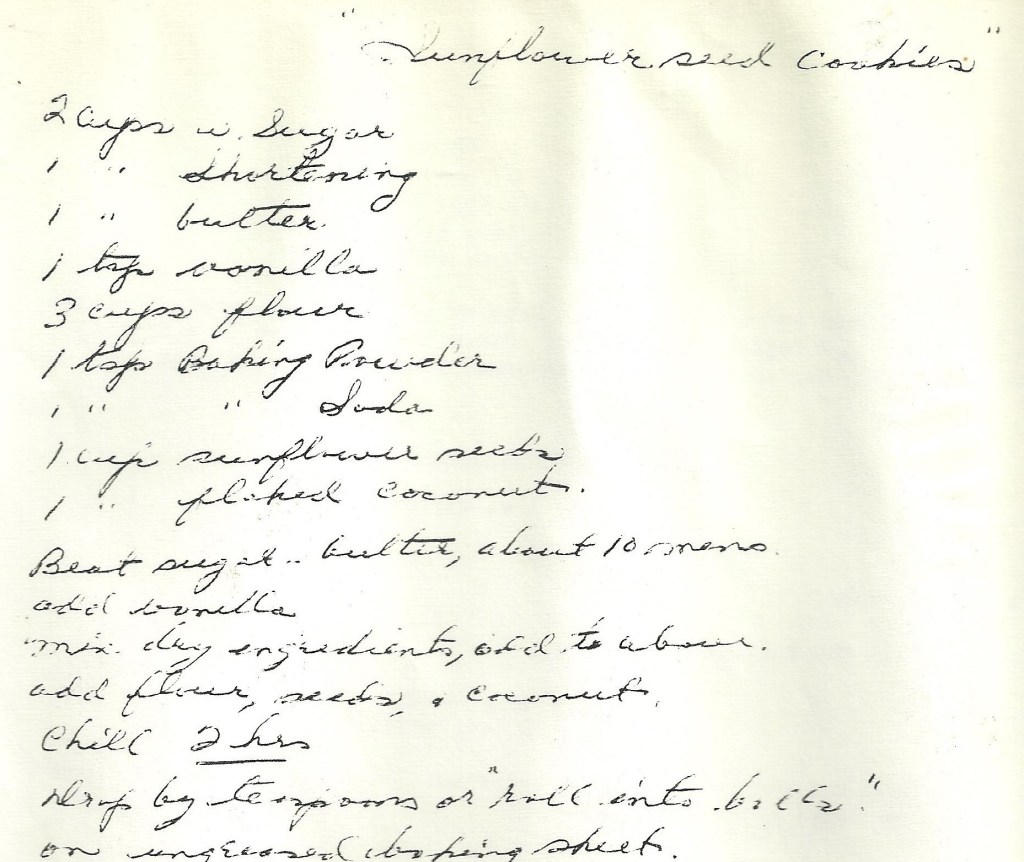 "Sunflower seed cookies"
2 cups w. Sugar
1 " Shortening
1 " butter.
1 tsp vanilla
3 cups flour
1 tsp Baking Powder
1 " " Soda
1 cup sunflower seeds
1 " flaked coconut.
Beat sugar.. butter, about 10 mens.
add vanilla
mix dry ingredients, add to above.
add flour, seeds, & coconut.
Chill 2 hrs
Drop by teaspoons or "roll into balls".
on ungreased baking sheet.